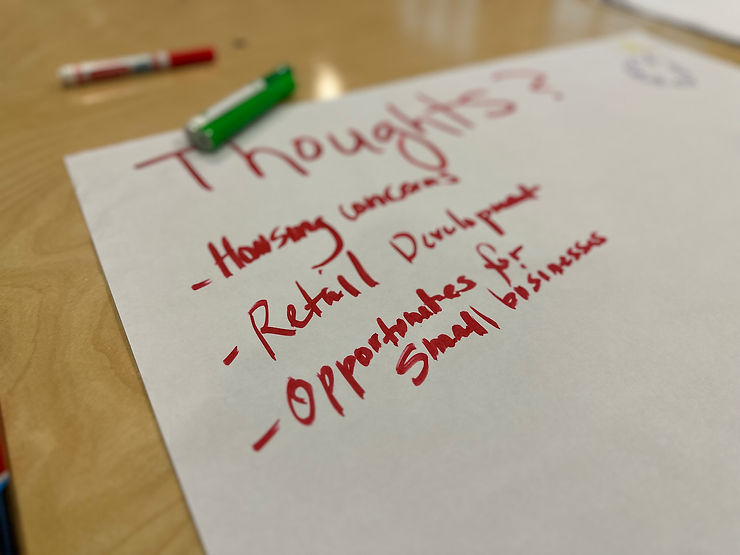 Thoughts?
- Housing concerns
- Retail Development
- Opportunities for
small businesses